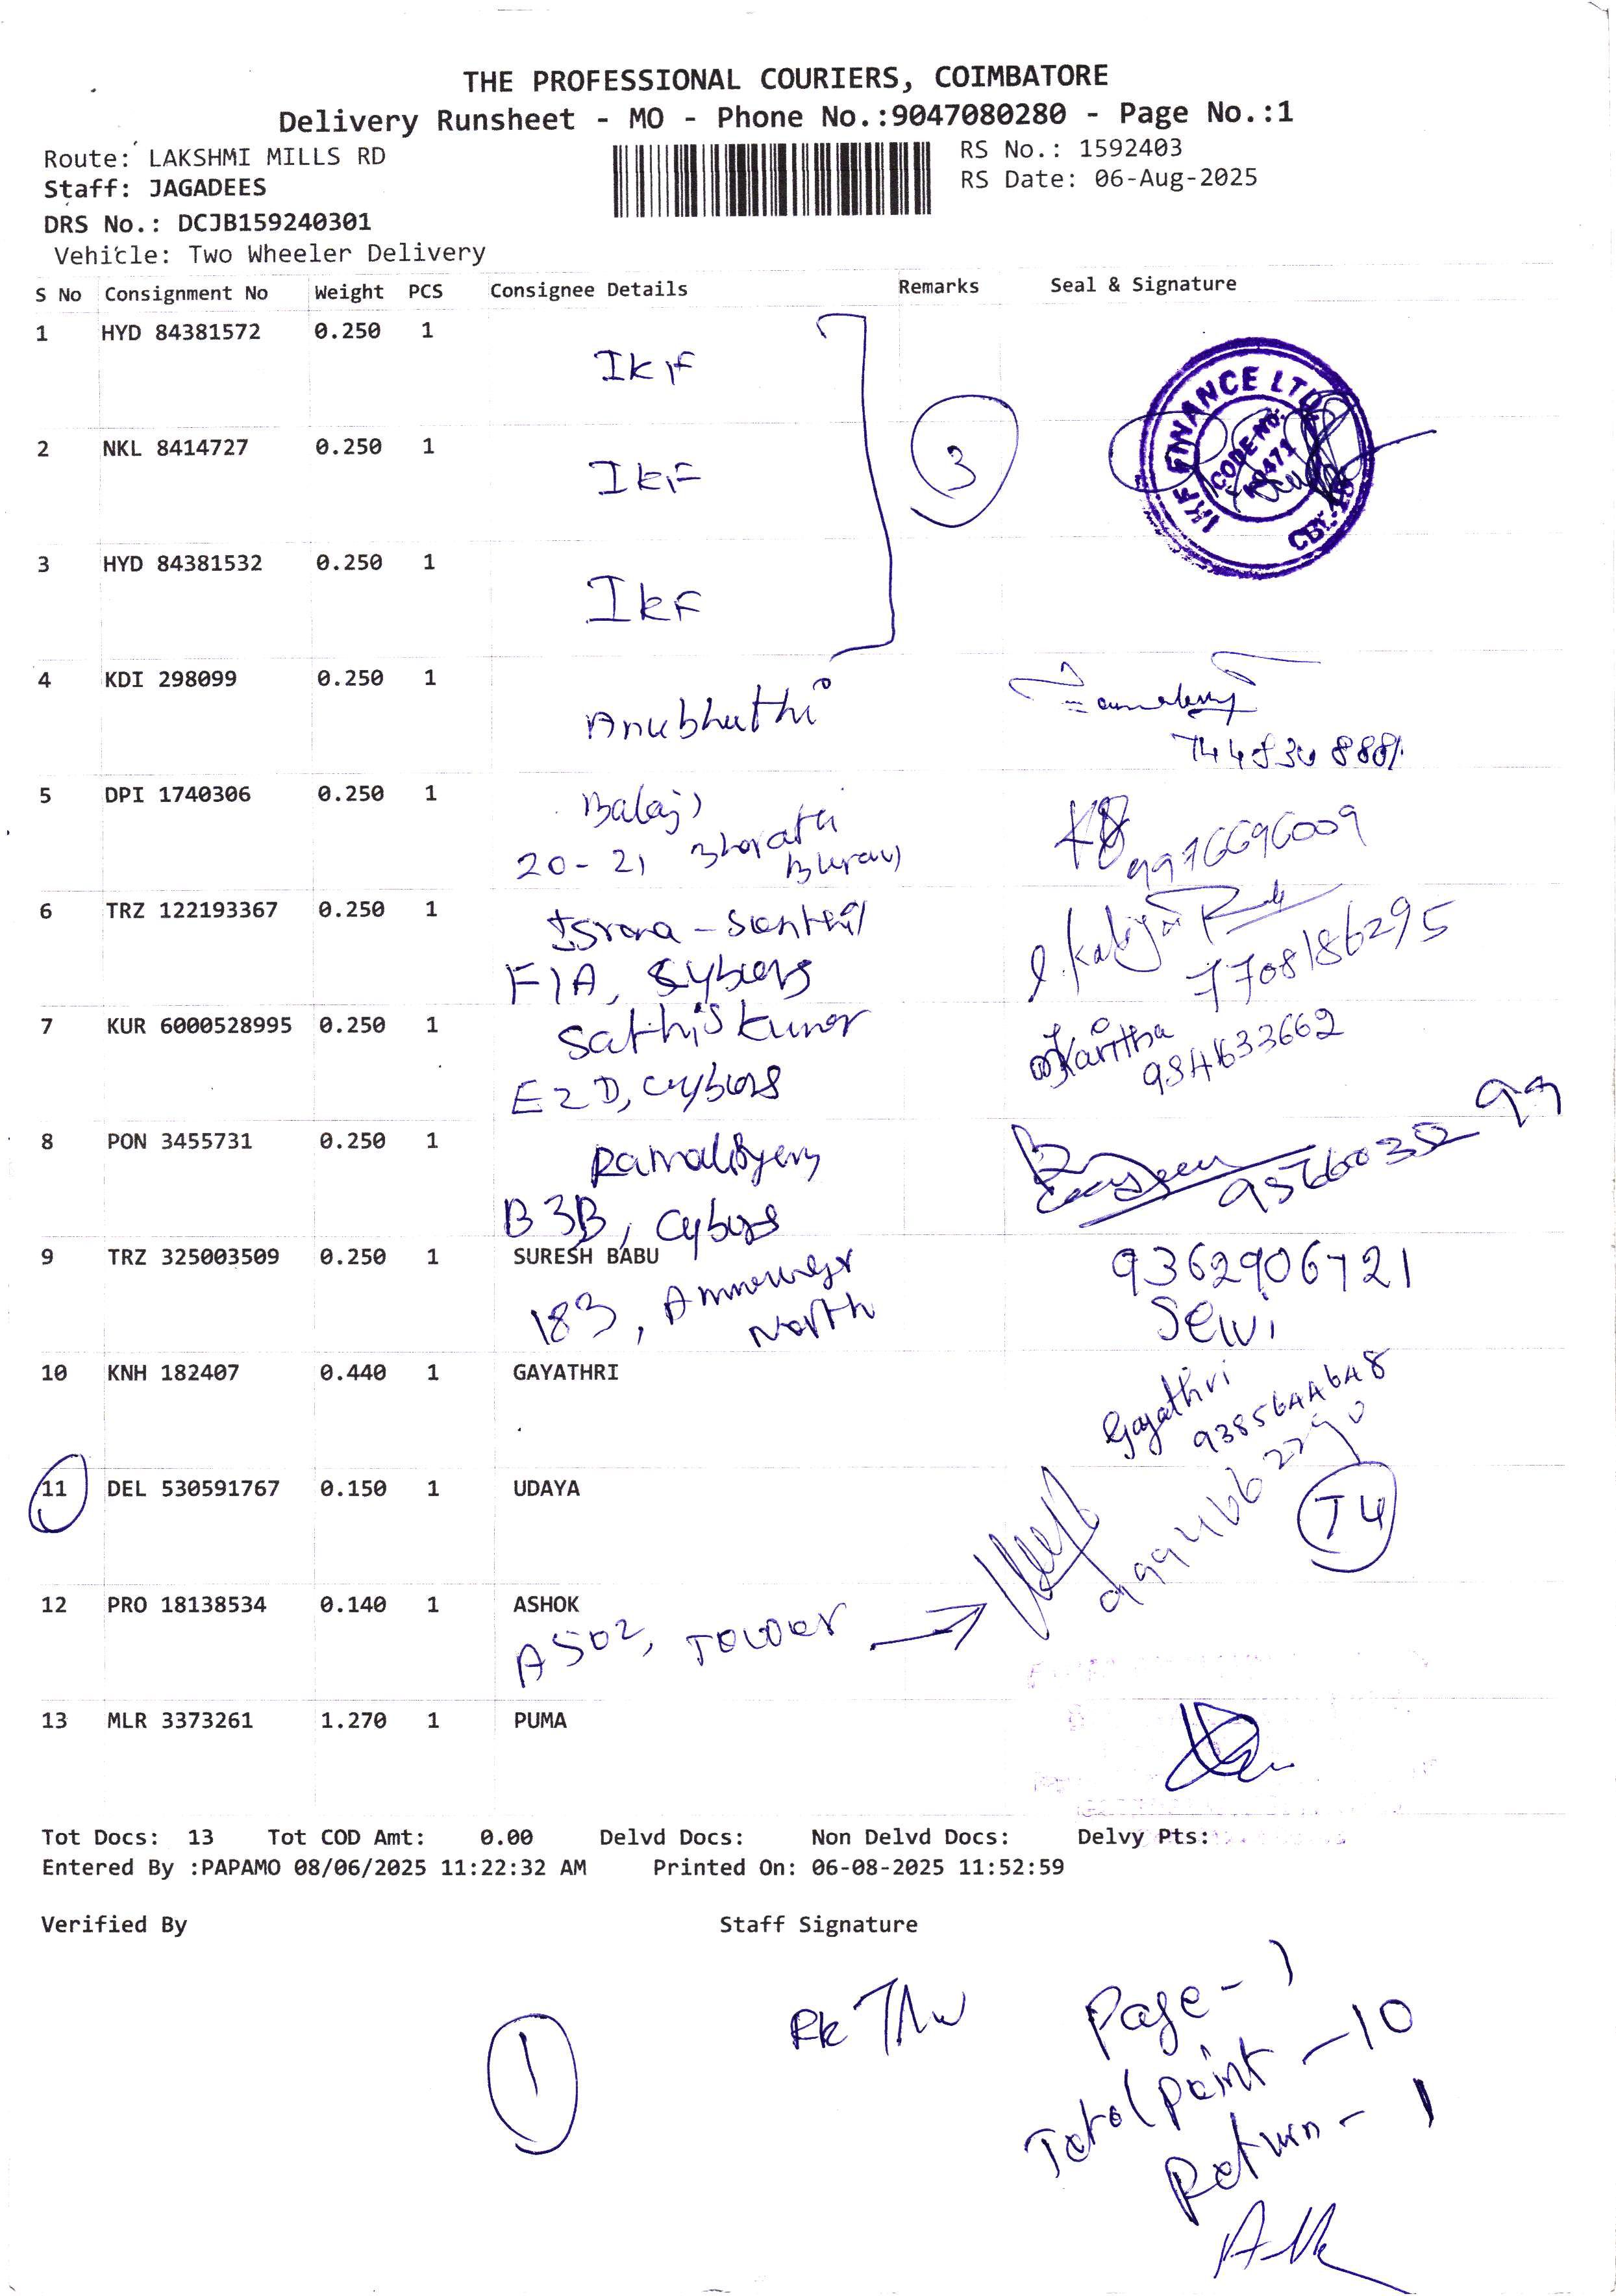 THE PROFESSIONAL COURIERS, COIMBATORE
Delivery Runsheet - MO - Phone No.:9047080280 - Page No.:1
Route: LAKSHMI MILLS RD
RS No.: 1592403
Staff: JAGADEES
RS Date: 06-Aug-2025
DRS No.: DCJB159240301
Vehicle: Two Wheeler Delivery
S No Consignment No Weight PCS Consignee Details Remarks Seal & Signature
1 HYD 84381572 0.250 1
IkF
IKF FINANCE LTD
CODE NO.
2 NKL 8414727 0.250 1
IkF
3
3 HYD 84381532 0.250 1
IkF
4 KDI 298099 0.250 1
Anubhuthi
5 DPI 1740306 0.250 1
Balaji
20-21 Bharathi
9976696009
6 TRZ 122193367 0.250 1
Isrona - Senthil
F1A,
7708186295
7 KUR 6000528995 0.250 1
Sathiskumar
Karitha
E2D,
8 PON 3455731 0.250 1
B3B,
9 TRZ 325003509 0.250 1 SURESH BABU
9362906721
183,
North
Selvi
10 KNH 182407 0.440 1 GAYATHRI
Gayathri
11 DEL 530591767 0.150 1 UDAYA
T4
12 PRO 18138534 0.140 1 ASHOK
A502, Tower
13 MLR 3373261 1.270 1 PUMA
Tot Docs: 13 Tot COD Amt: 0.00 Delvd Docs: Non Delvd Docs: Delvy Pts:
Entered By :PAPAMO 08/06/2025 11:22:32 AM Printed On: 06-08-2025 11:52:59
Verified By Staff Signature
Page - 1
Total Point - 10
Return - 1
1